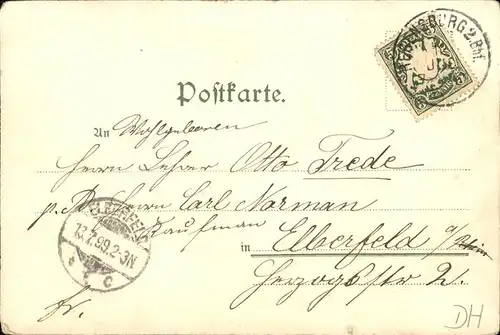 REGENSBURG 2. Bhf.
Postkarte.
An Wohlgeboren
Herrn Lehrer Otto Trede
p. Adr. Herrn Carl Norman
Kaufman
in Elberfeld a/Rhein
ELBERFELD
13.7.99.2-3N
c
Herzogstr 2.
fr.
DH